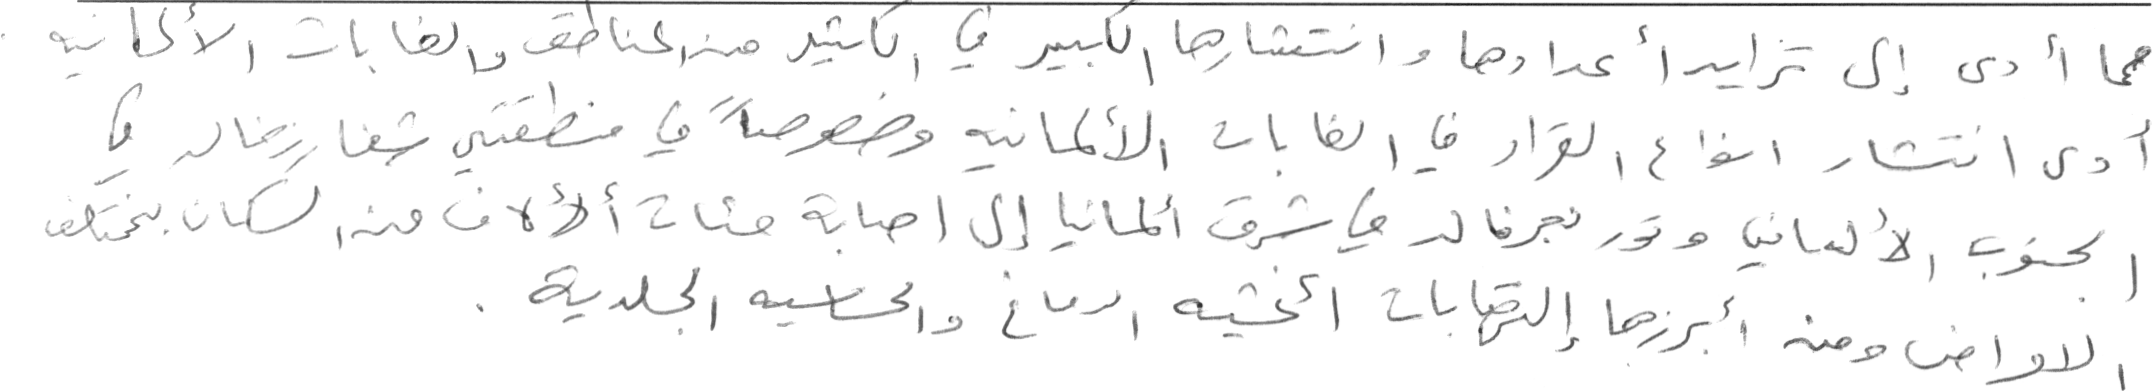 مما أدى إلى تزايد أعدادها وانتشارها الكبير في الكثير من المناطق والغابات الألمانيه .
أدى انتشار انواع القراد في الغابات الألمانيه وخصوصاً في منطقتي شفارزفالد في
الجنوب الألماني وتورنجرفالد في شرق ألمانيا إلى اصابة مئات ألألاف من السكان بمختلف
الامراض ومن أبرزها إلتهابات أغشيه الدماغ والحساسيه الجلدية .